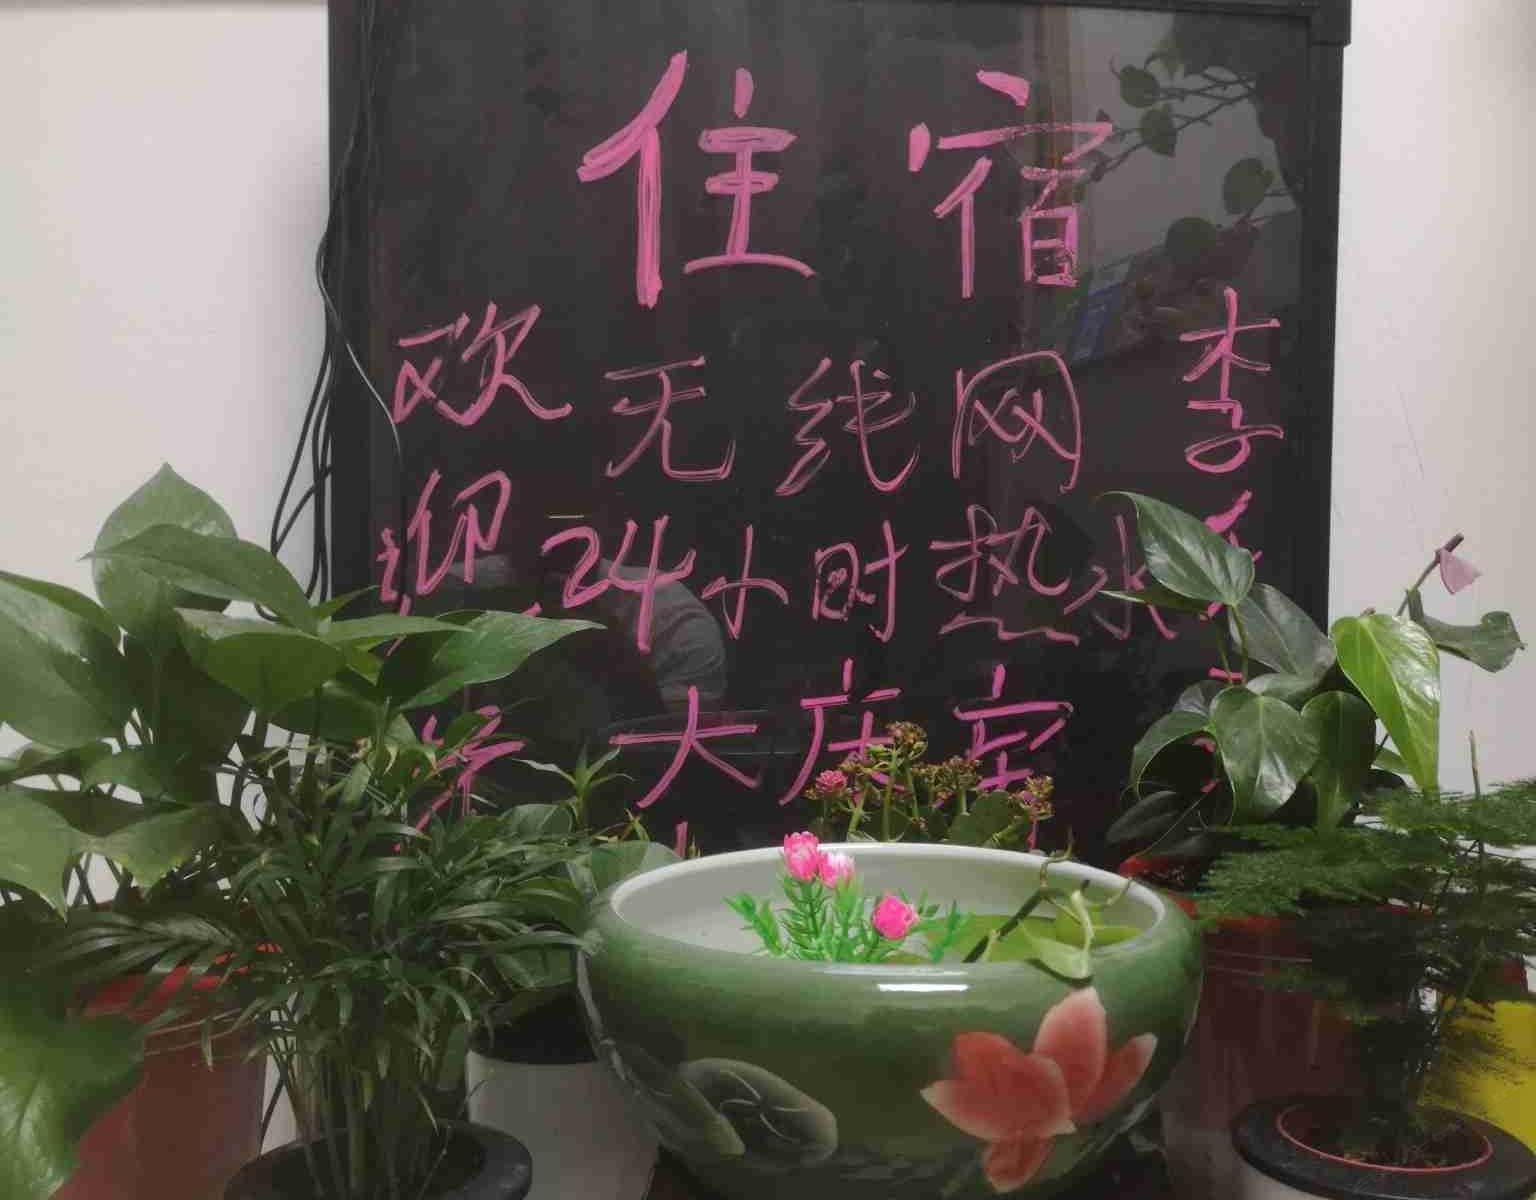 住宿
欢迎
无线网
24小时热水
大床室
李